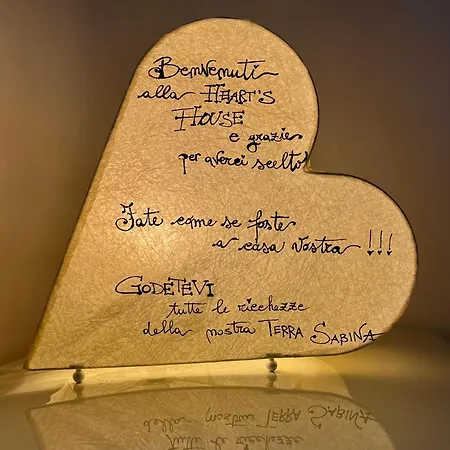 Benvenuti
alla HEART'S
HOUSE
e grazie
per averci scelto!
Fate come se foste
a casa vostra !!!
GODETEVI
tutte le ricchezze
della nostra TERRA SABINA